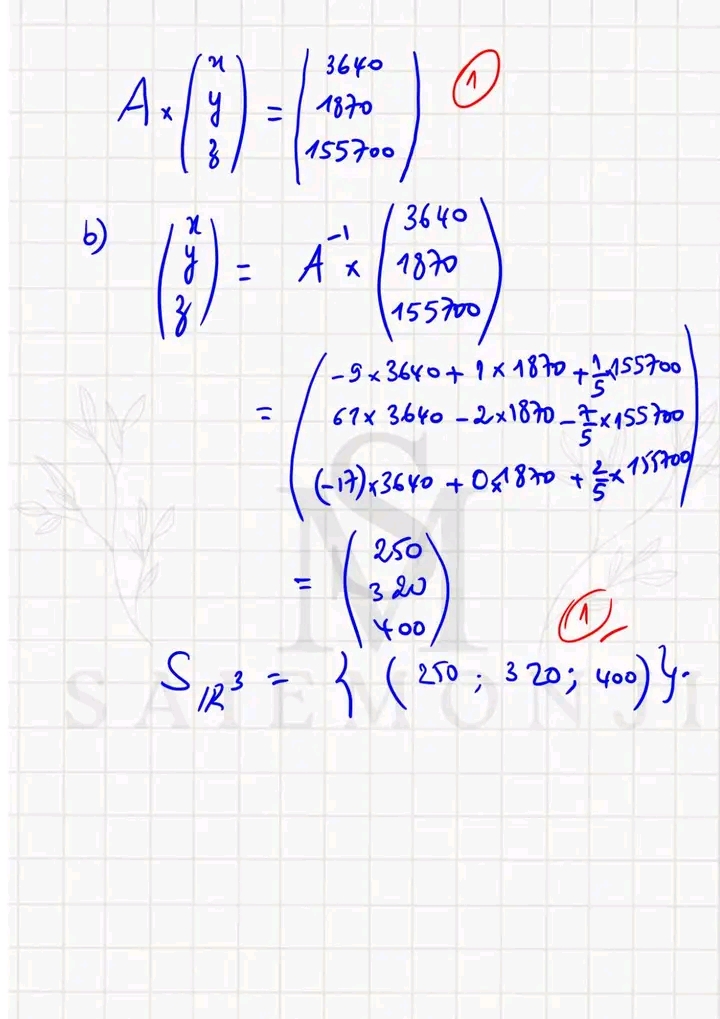 A × (x y z) = (3640 1870 155700) 1
b) (x y z) = A⁻¹ × (3640 1870 155700)
= (-9 × 3640 + 1 × 1870 + 1/5 × 155700
61 × 3640 - 2 × 1870 - 7/5 × 155700
(-17) × 3640 + 0 × 1870 + 2/5 × 155700)
= (250 320 400)
1
S_IR³ = { (250 ; 320 ; 400) }.
SM
SAIEMONJI